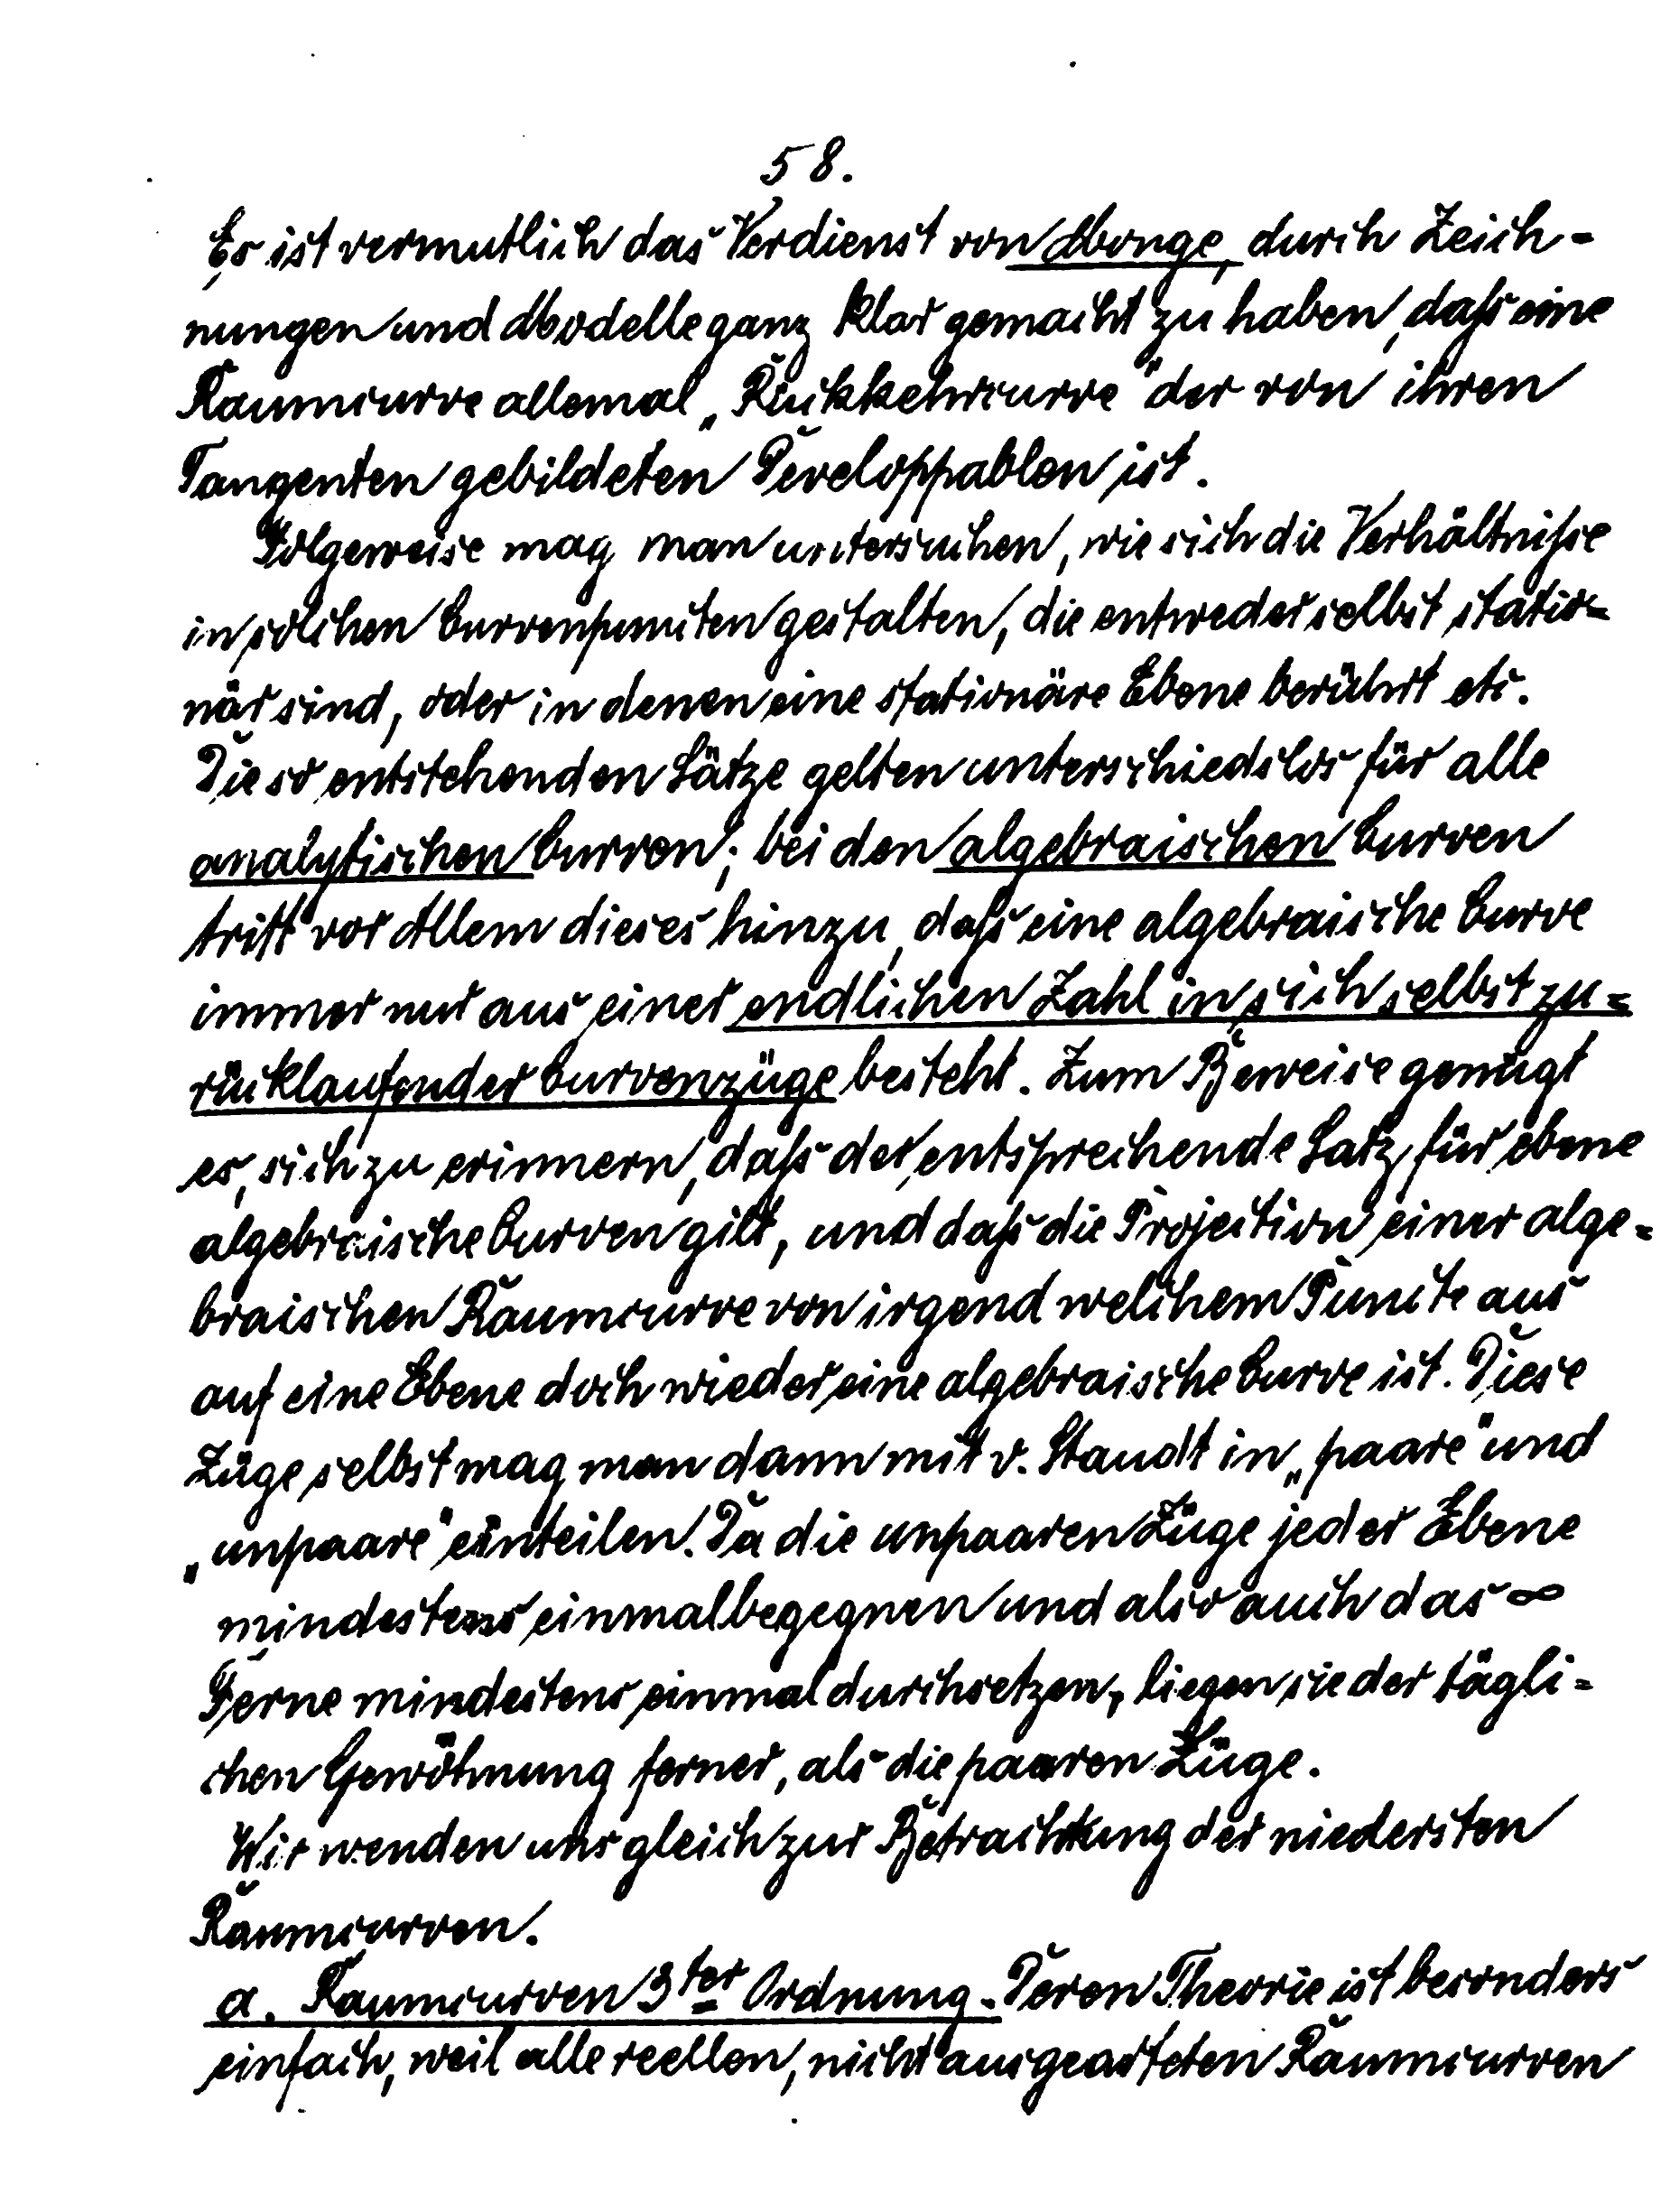 58.
Es ist vermutlich das Verdienst von Monge, durch Zeich-
nungen und Modelle ganz klar gemacht zu haben, daß eine
Raumcurve allemal „Rückkehrcurve" der von ihren
Tangenten gebildeten Developpablen ist.
Folgeweise mag man untersuchen, wie sich die Verhältniße
in solchen Curvenpuncten gestalten, die entweder selbst statio-
när sind, oder in denen eine stationäre Ebene berührt etc.
Die so entstehenden Sätze gelten unterschiedslos für alle
analytischen Curven; bei den algebraischen Curven
tritt vor Allem dieses hinzu, daß eine algebraische Curve
immer nur aus einer endlichen Zahl in sich selbst zu-
rücklaufender Curvenzüge besteht. Zum Beweise genügt
es, sich zu erinnern, daß der entsprechende Satz für ebene
algebraische Curven gilt, und daß die Projection einer alge-
braischen Raumcurve von irgend welchem Puncte aus
auf eine Ebene doch wieder eine algebraische Curve ist. Diese
Züge selbst mag man dann mit v. Staudt in „paare" und
„unpaare" einteilen. Da die unpaaren Züge jeder Ebene
mindestens einmal begegnen und also auch das ∞
Ferne mindestens einmal durchsetzen, liegen sie der tägli-
chen Gewöhnung ferner, als die paaren Züge.
Wir wenden uns gleich zur Betrachtung der niedersten
Raumcurven.
a. Raumcurven 3ter Ordnung. Deren Theorie ist besonders
einfach, weil alle reellen, nicht ausgearteten Raumcurven